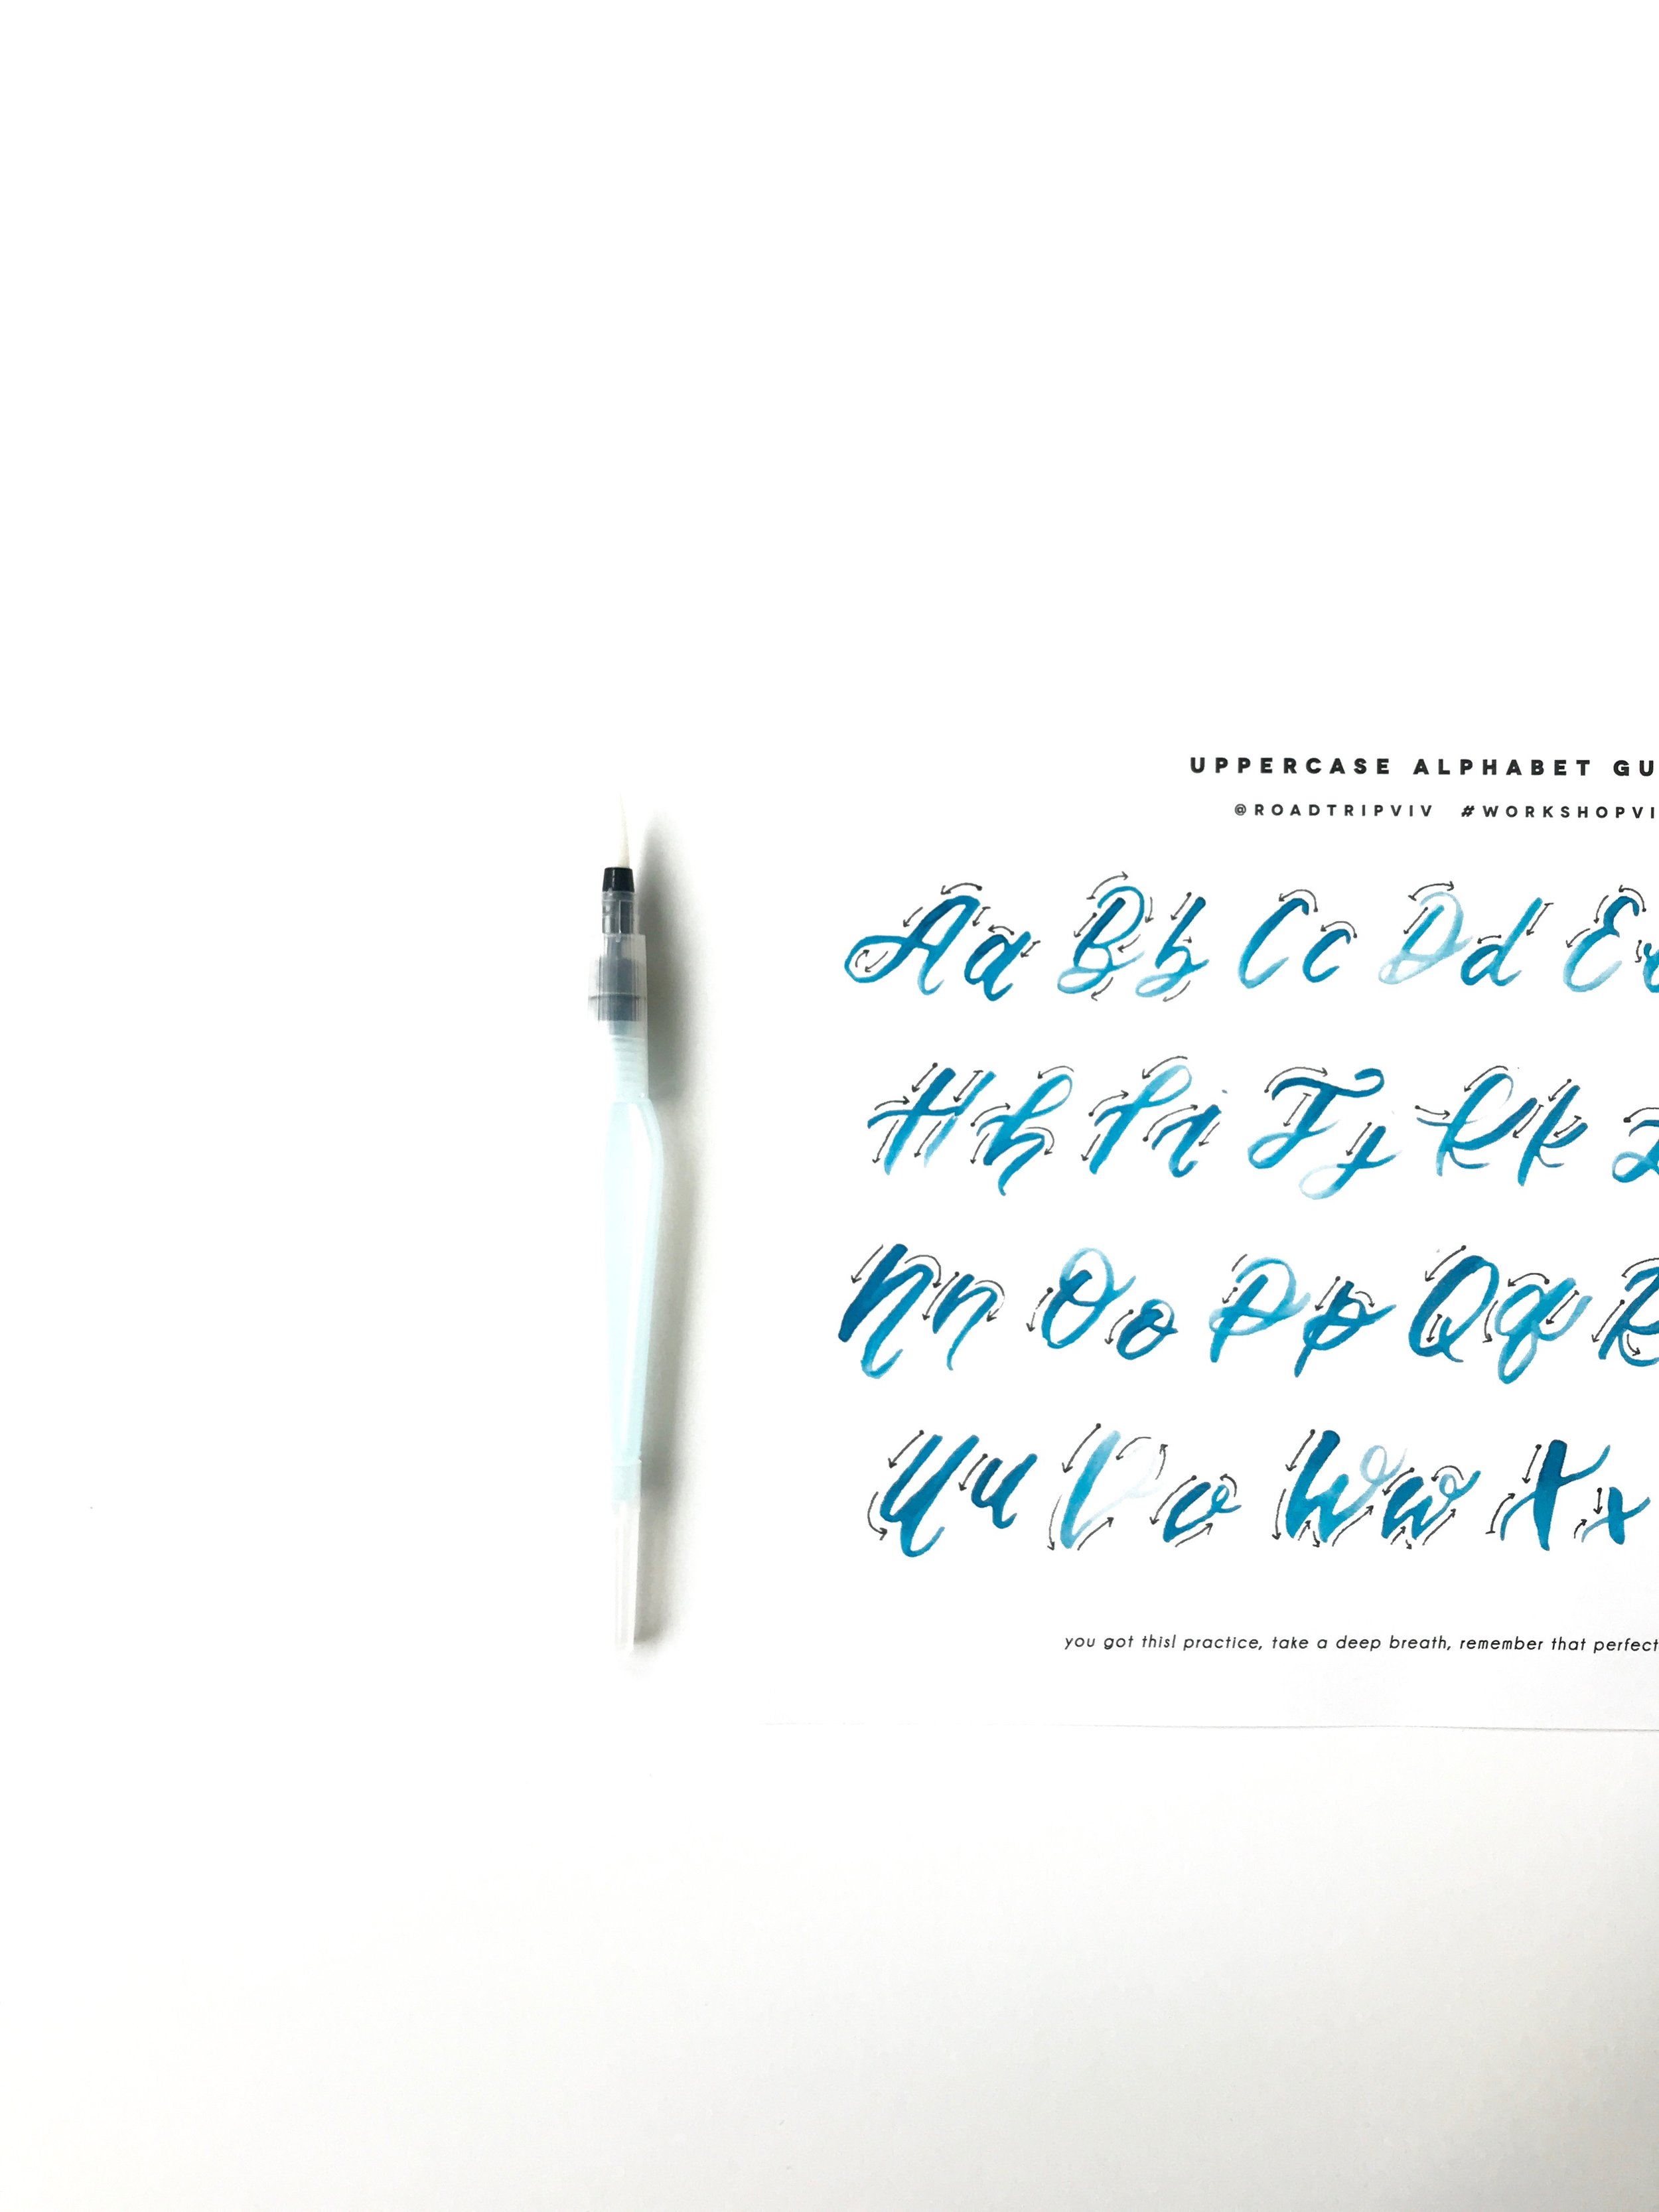 UPPERCASE ALPHABET GU
@ROADTRIPVIV #WORKSHOPVI
Aa Bb Cc Dd E
Hh Ii Jj Kk
Nn Oo Pp Qq R
Uu Vv Ww Xx
you got this! practice, take a deep breath, remember that perfect